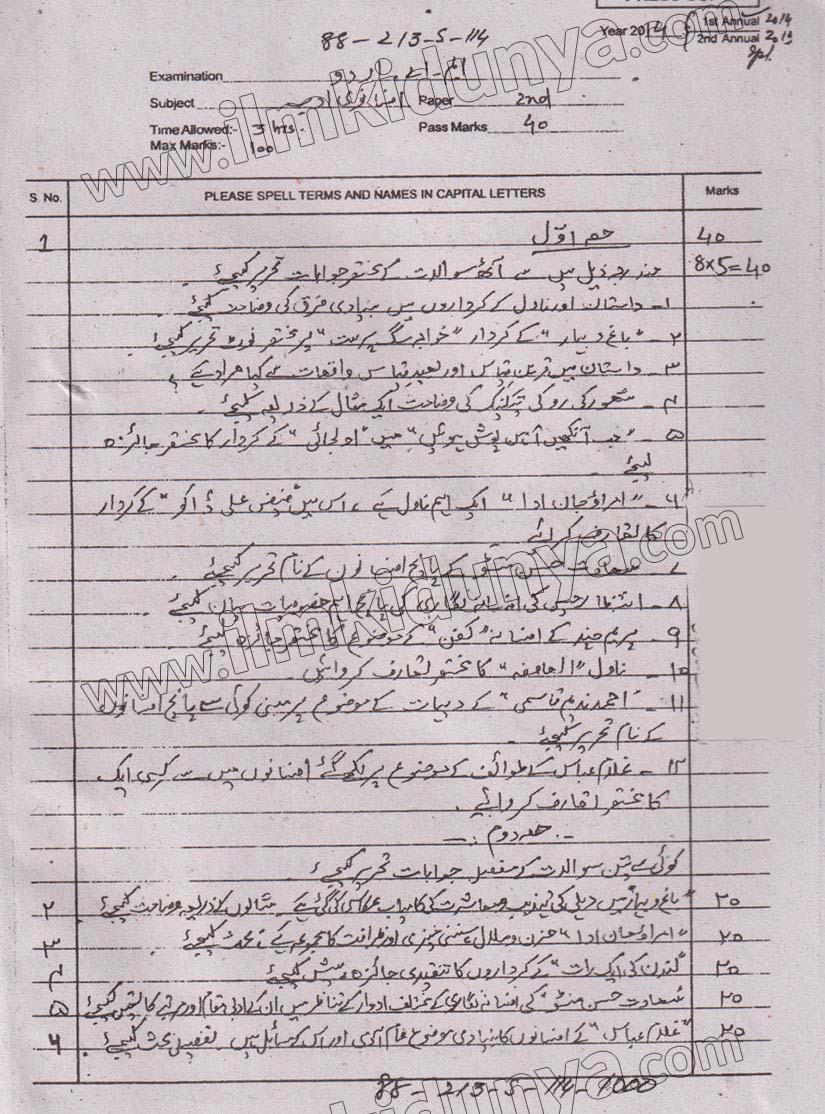 Year 2014
1st Annual 2014
2nd Annual 2013
Spl.
88-213-S-114
Examination ایم۔اے۔ اردو
Subject افسانوی ادب Paper 2nd
Time Allowed:- 3 hrs. Pass Marks 40
Max Marks:- 100
S. No. PLEASE SPELL TERMS AND NAMES IN CAPITAL LETTERS Marks
1 حصہ اوّل 40
مندرجہ ذیل میں سے آٹھ سوالات کے مختصر جوابات تحریر کیجئے۔ 8x5=40
۱۔ داستان اور ناول کے کرداروں میں بنیادی فرق کی وضاحت کیجئے۔
۲۔ "باغ و بہار" کے کردار "خواجہ سگ پرست" پر مختصر نوٹ تحریر کیجئے۔
۳۔ داستان میں قرین قیاس اور بعید قیاس واقعات سے کیا مراد ہے؟
۴۔ شعور کی رو کی تکنیک کی وضاحت ایک مثال کے ذریعہ کیجئے۔
۵۔ "جب آنکھیں آہن پوش ہوئیں" میں "اولجائی" کے کردار کا مختصر جائزہ
لیجئے
۶۔ "امراؤ جان ادا" ایک اہم ناول ہے، اس میں "فیض علی ڈاکو" کے کردار
کا تعارف کرائیے
۷۔ سعادت حسن منٹو کے پانچ افسانوں کے نام تحریر کیجئے۔
۸۔ انتظار حسین کی افسانہ نگاری کی پانچ اہم خصوصیات بیان کیجئے۔
۹۔ پریم چند کے افسانہ "کفن" کے موضوع کا مختصر جائزہ لیجئے
۱۰۔ ناول "العاصفہ" کا مختصر تعارف کروائیں۔
۱۱۔ "احمد ندیم قاسمی" کے دیہات کے موضوع پر مبنی کوئی سے پانچ افسانوں
کے نام تحریر کیجئے۔
۱۲۔ غلام عباس کے طوائف کے موضوع پر لکھے گئے افسانوں میں سے کسی ایک
کا مختصر تعارف کروائیے۔
حصہ دوم
کوئی سے تین سوالات کے مفصل جوابات تحریر کیجئے۔
۲ "باغ و بہار" میں دہلی کی تہذیب و معاشرت کی کامیاب عکاسی کی گئی ہے۔ مثالوں کے ذریعہ وضاحت کیجئے ۲۰
۳ "امراؤ جان ادا" حزن و ملال، سنسنی خیزی اور ظرافت کا مجموعہ ہے۔ بحث کیجئے ۲۰
۴ "لندن کی ایک رات" کے کرداروں کا تنقیدی جائزہ پیش کیجئے ۲۰
۵ "سعادت حسن منٹو" کی افسانہ نگاری کے مختلف ادوار کے تناظر میں ان کے ادبی مقام اور مرتبے کا تعین کیجئے ۲۰
۶ "غلام عباس" کے افسانوں کا بنیادی موضوع عام آدمی اور اس کے مسائل ہیں۔ تفصیلی بحث کیجئے۔ ۲۰
88-213-S-114-1000
www.ilmkidunya.com
www.ilmkidunya.com